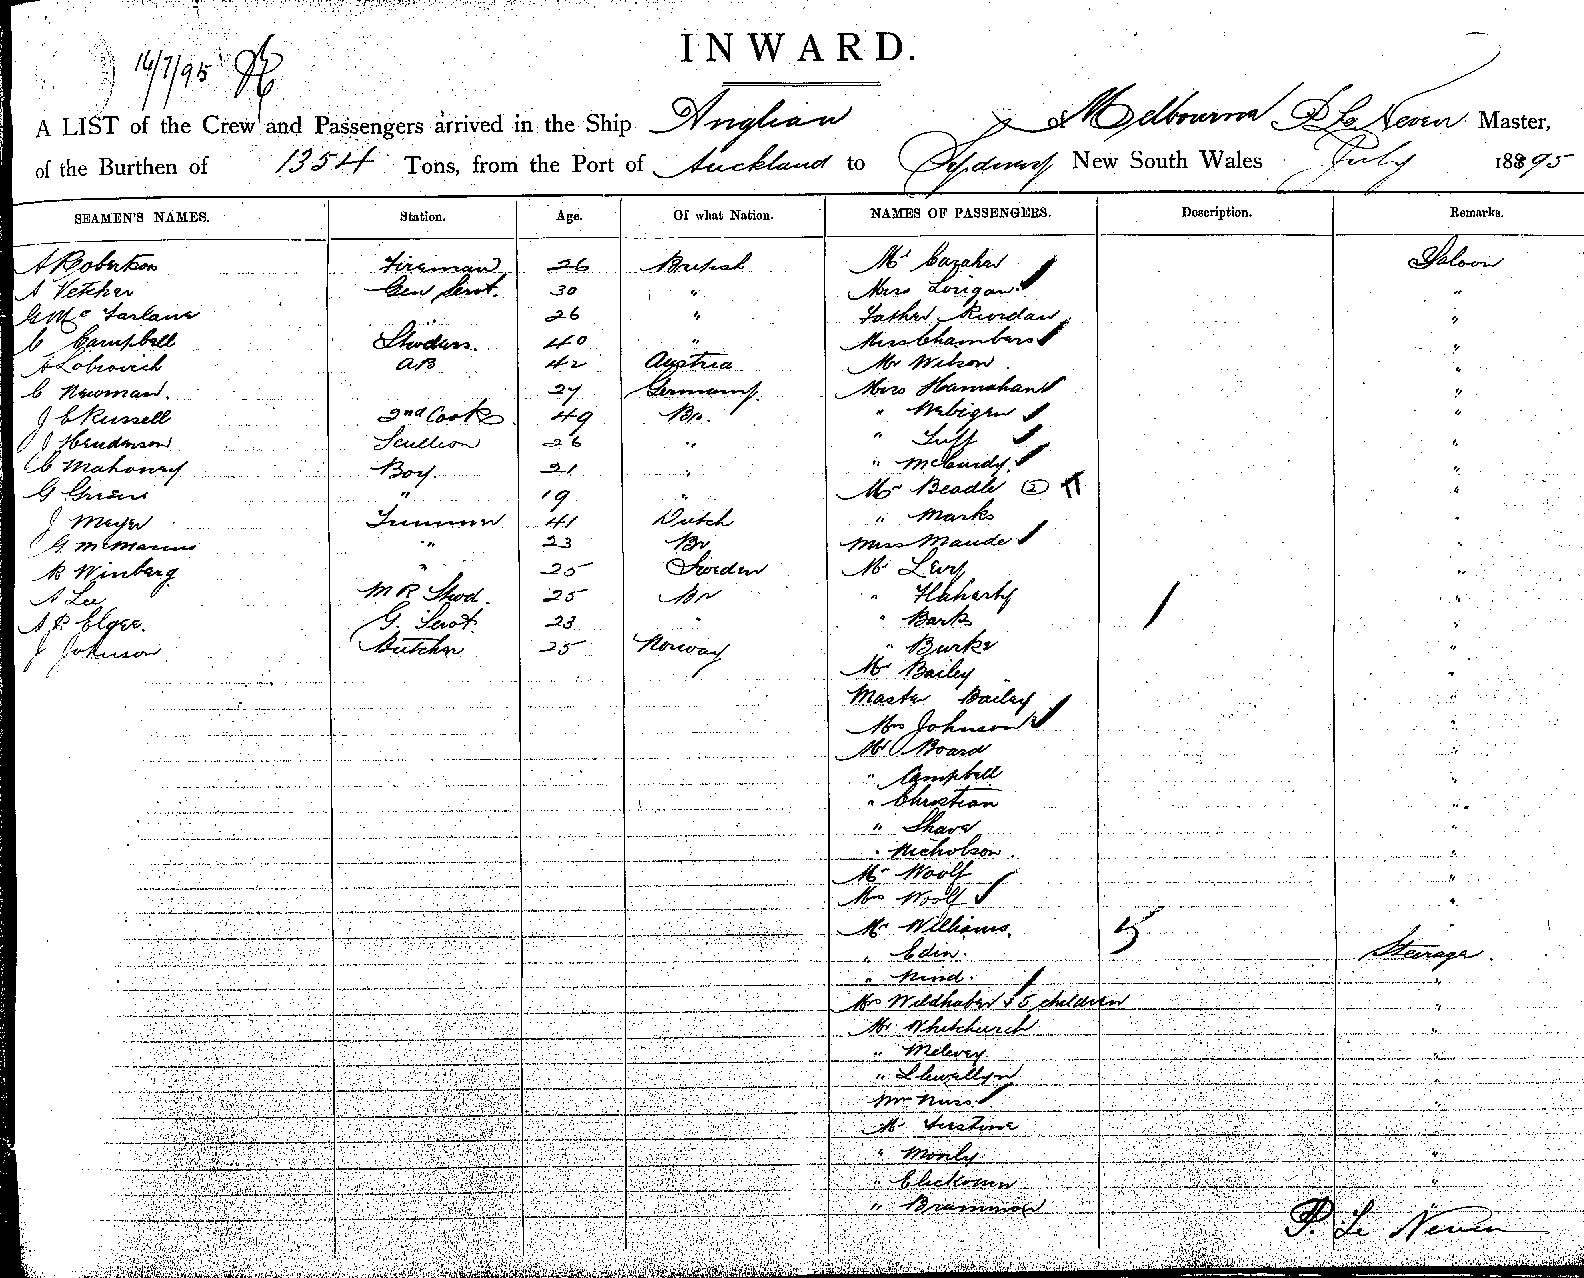 INWARD.
14/7/95
A LIST of the Crew and Passengers arrived in the Ship Anglian Melbourne P Le Neven Master,
of the Burthen of 1354 Tons, from the Port of Auckland to Sydney New South Wales July 18895
SEAMEN'S NAMES. Station. Age. Of what Nation. NAMES OF PASSENGERS. Description. Remarks.
A Robertson Fireman 26 British Mr Saloon
A Vetcher Gen Servt. 30 " Miss Lorigan "
G Mc Farlane " 26 " Father Riordan "
C Campbell 40 " Miss Chambers "
A Lobrovich AB 42 Austria Mr Wilson "
C Newman. 27 Germany Miss Hannahan "
J C Russell 2nd Cook 49 Br. " "
J Henderson Scullion 26 " " Tuff "
C Mahoney Boy. 21 " " McCurdy "
G " 19 " Mr Beadle (2) "
J Meyer Trimmer 41 Dutch " Marks "
G McManus " 23 Br Miss Maude "
R Winberg " 25 Sweden Mr Levy "
A Lee M R Stwd. 25 Br " Flaherty "
A P Elgee. G. Servt 23 " " Bark "
J Johnson Butcher 25 Norway " Burke "
Mr Bailey "
Master Bailey "
Mrs Johnson "
Mr Board "
" Campbell "
" Christian "
" Shave "
" Nicholson. "
Mr Woolf "
Mrs Woolf "
Mr Williams. 5 "
" Edin. Steerage.
" Nind. "
Mrs Wildhaber & 5 children "
Mr Whitchurch "
" "
" Llewellyn "
"
Mr "
" Monly "
" "
"
P. Le Neven